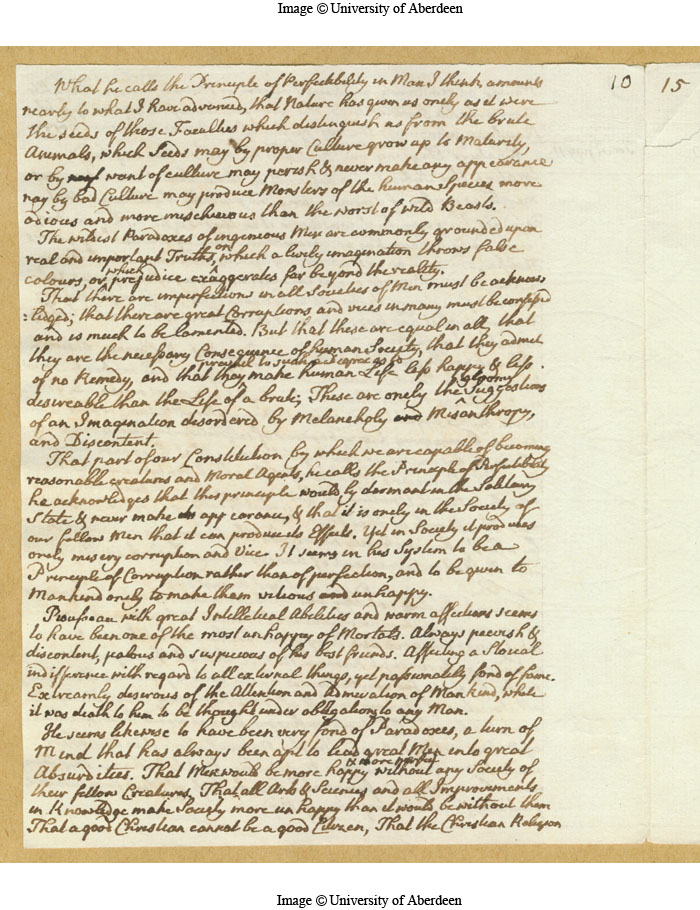 Image © University of Aberdeen
10
15
What he calls the Principle of Perfectibility in Man I think amounts
nearly to what I have advanced, that Nature has given us onely as it were
the seeds of those Faculties which distinguish us from the brute
Animals, which Seeds may by proper Culture grow up to Maturity,
or by want of culture may perish & never make any appearance
nay by bad Culture may produce Monsters of the human Species more
odious and more mischievous than the worst of wild Beasts.
The wildest Paradoxes of ingenious Men are commonly grounded upon
real and important Truths, on which a lively imagination throws false
colours, or which prejudice exaggerates far beyond the reality.
That there are imperfections in all Societies of Men must be acknow
:ledged; that there are great Corruptions and vices in many must be confessed
and is much to be lamented. But that these are equal in all, that
they are the necessary Consequence of human Society, that they admit
of no Remedy, and that they prevail to such a degree as to make human Life less happy & less
desireable than the Life of a brute; These are onely the gloomy Suggestions
of an Imagination disordered by Melancholy and Misanthropy,
and Discontent.
That part of our Constitution by which we are capable of becoming
reasonable creatures and Moral Agents, he calls the Principle of Perfectibility
he acknowledges that this principle would ly dormant in the Solitary
State & never make an appearance, & that it is onely in the Society of
our fellow Men that it can produce its Effects. Yet in Society it produces
onely misery corruption and Vice It seems in his System to be a
Principle of Corruption rather than of perfection, and to be given to
Mankind onely to make them vitious and unhappy.
Rousseau with great Intellectual Abilities and warm affections seems
to have been one of the most unhappy of Mortals. Always peevish &
discontent, jealous and suspicious of his best friends. Affecting a Stoical
indifference with regard to all external things, yet passionately fond of fame.
Extreamly desirous of the Attention and Admiration of Mankind, while
it was death to him to be thought under obligation to any Man.
He seems likewise to have been very fond of Paradoxes, a turn of
Mind that has always been apt to lead great Men into great
Absurdities. That Men would be more happy & more perfect without any Society of
their fellow Creatures, That all Arts & Sciences and all Improvements
in Knowledge make Society more unhappy than it would be without them
That a good Christian cannot be a good Citizen, That the Christian Religion
Image © University of Aberdeen